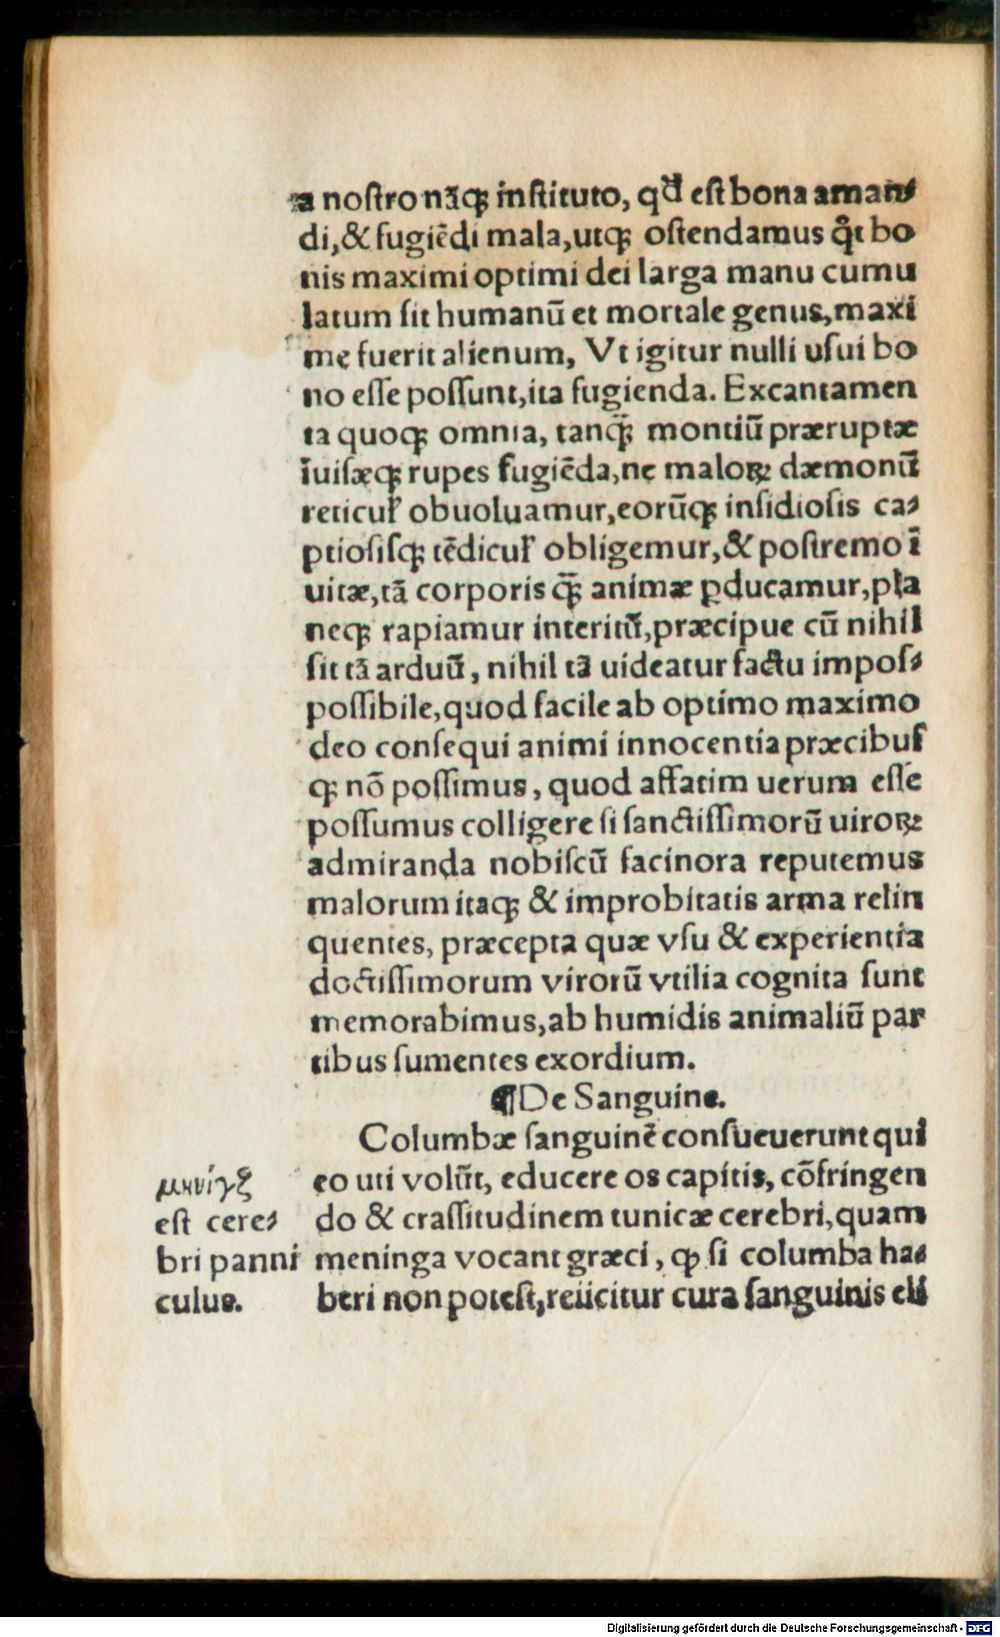 a nostro nãqꝫ instituto, qđ est bona aman⸗
di, & fugiẽdi mala, utqꝫ ostendamus qͣt bo
nis maximi optimi dei larga manu cumu
latum sit humanũ et mortale genus, maxi
me fuerit alienum, Vt igitur nulli usui bo
no esse possunt, ita fugienda. Excantamen
ta quoqꝫ omnia, tanqꝫ̃ montiũ præruptæ
ĩuisæqꝫ rupes fugiẽda, ne maloꝝ dæmonũ
reticuł obuoluamur, eorũqꝫ insidiosis ca⸗
ptiosisqꝫ tẽdicuł obligemur, & postremo ĩ
uitæ, tã corporis qꝫ̃ animæ ꝑducamur, pla
neqꝫ rapiamur interitũ, præcipue cũ nihil
sit tã arduũ, nihil tã uideatur factu impos⸗
possibile, quod facile ab optimo maximo
deo consequi animi innocentia præcibus
qꝫ nõ possimus, quod affatim uerum esse
possumus colligere si sanctissimorũ uiroꝝ
admiranda nobiscũ facinora reputemus
malorum itaqꝫ & improbitatis arma relin
quentes, præcepta quæ vsu & experientia
doctissimorum virorũ vtilia cognita sunt
memorabimus, ab humidis animaliũ par
tibus sumentes exordium.
¶De Sanguine.
Columbæ sanguinẽ consueuerunt qui
eo uti volũt, educere os capitis, cõfringen
do & crassitudinem tunicæ cerebri, quam
meninga vocant græci, ꝙ si columba ha⸗
beri non potest, reiicitur cura sanguinis eli
μηνίγξ
est cere⸗
bri panni
culus.
Digitalisierung gefördert durch die Deutsche Forschungsgemeinschaft - DFG